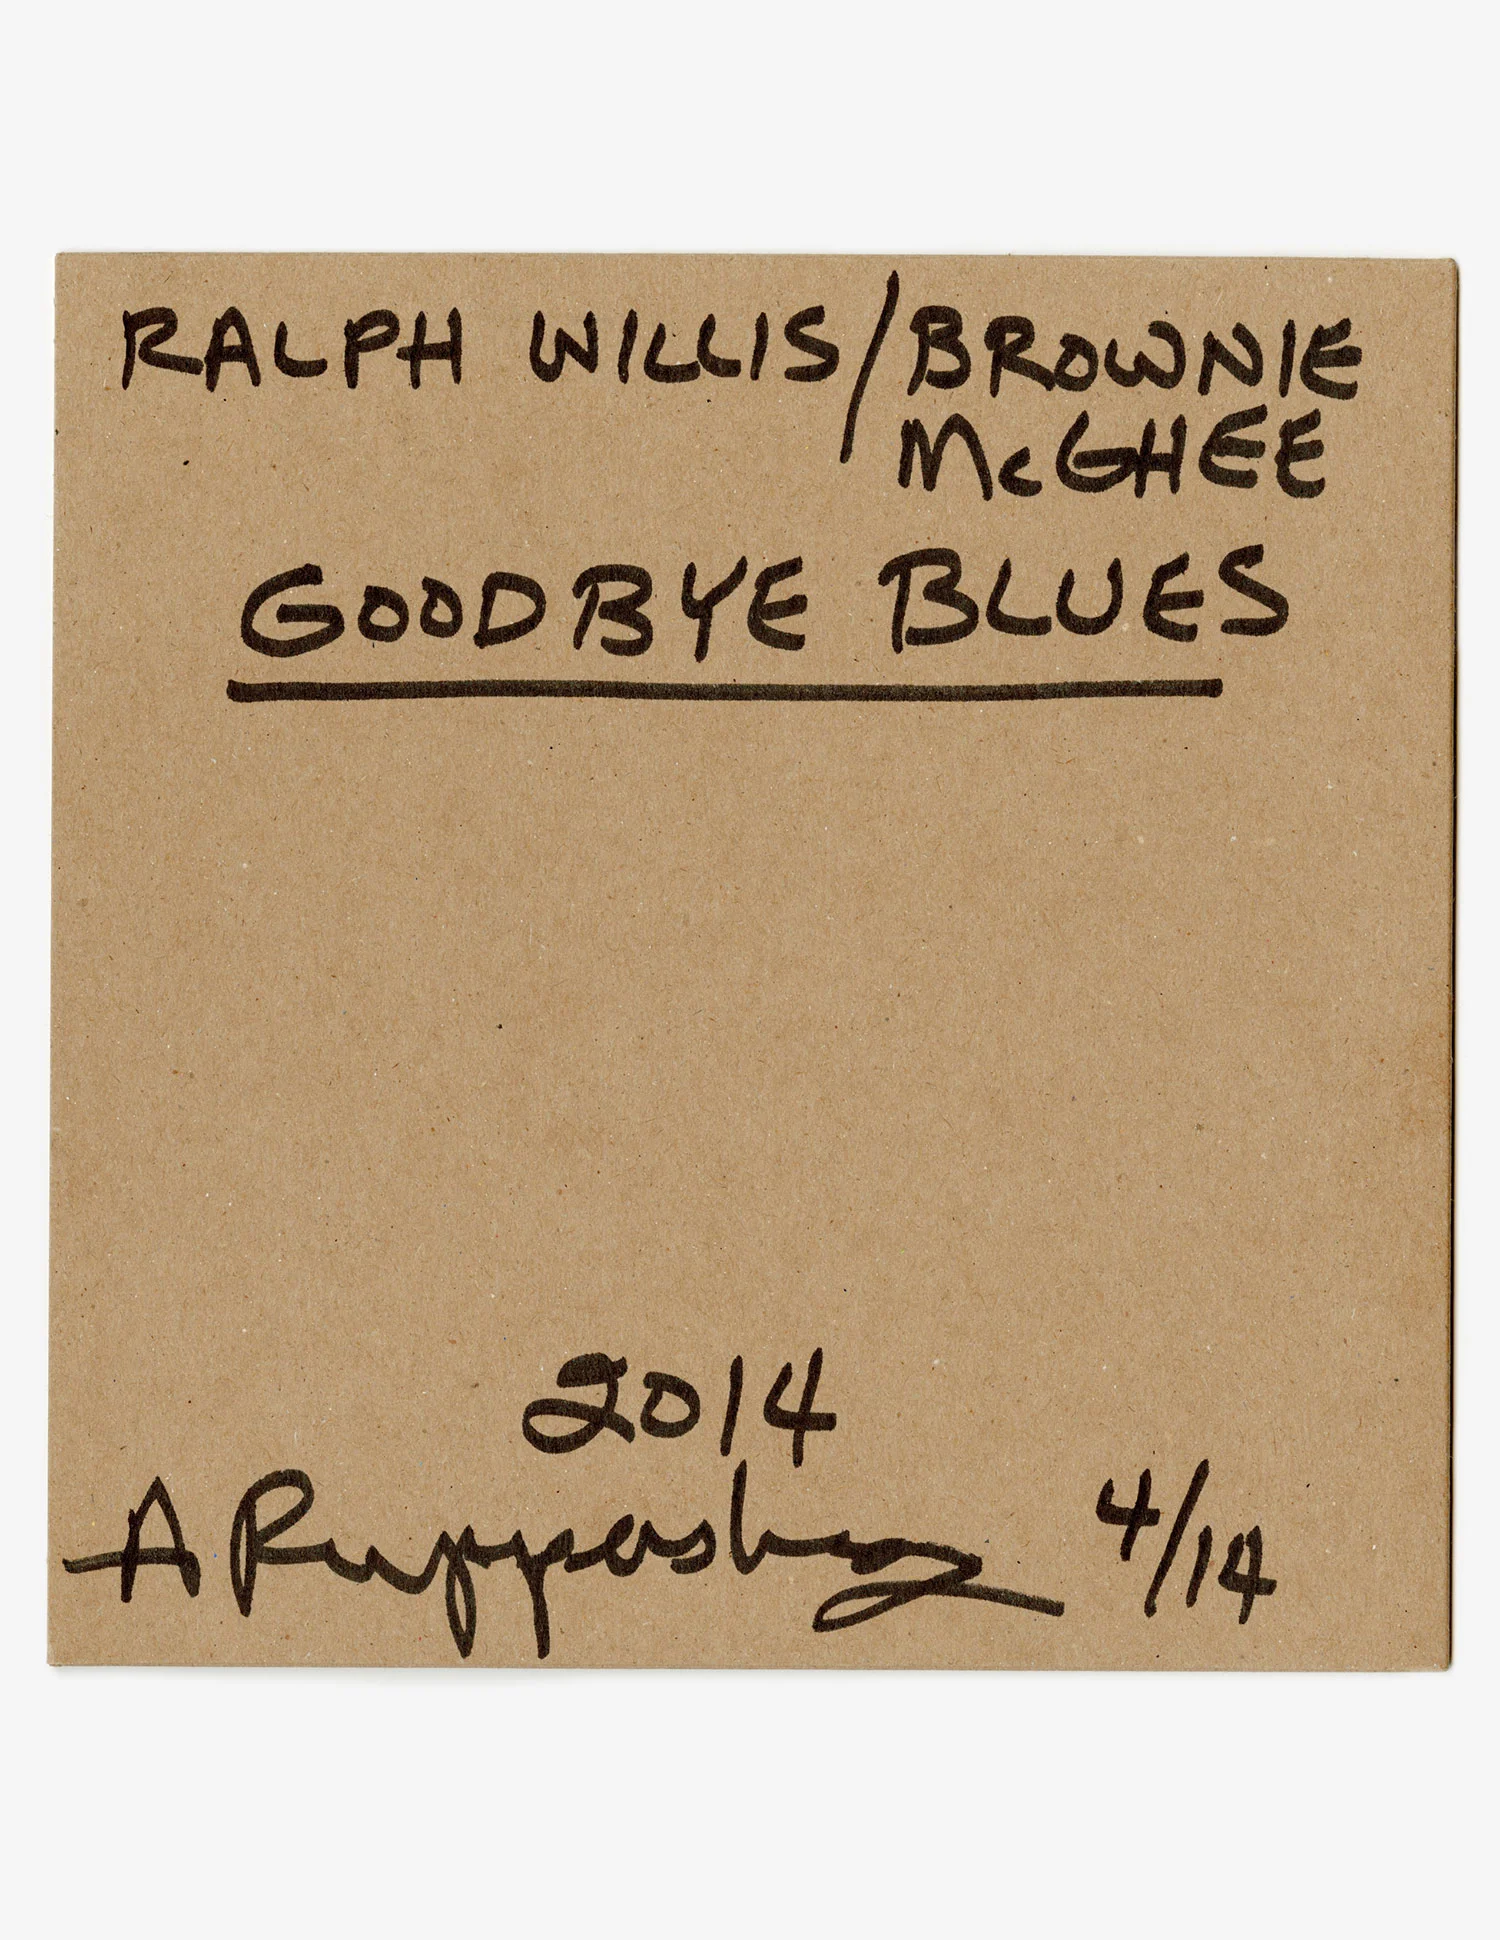 RALPH WILLIS/BROWNIE
McGHEE
GOODBYE BLUES
2014
A Ruppersberg 4/14